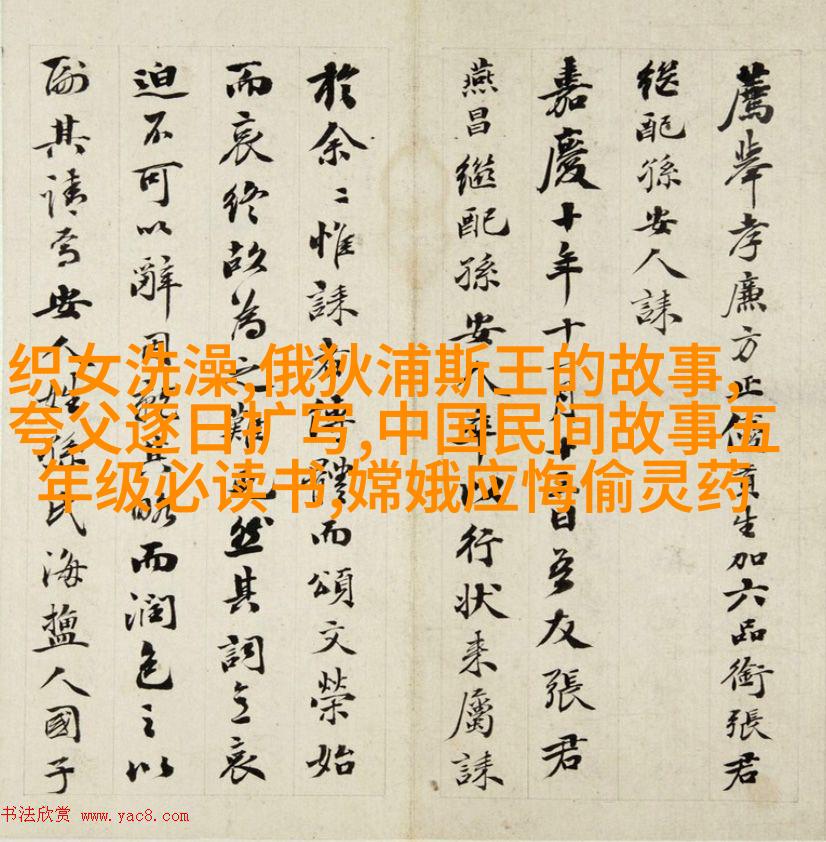 薦舉孝廉方正貢生加六品銜張君
繼配孫安人誄
嘉慶十年十月日吾友張君
燕昌繼配孫安人以行状来屬誄
於余〻惟誄體而頌文榮始
而哀終故為之難然其詞哀
迫不可以辭其略而潤色之以
副其請焉安人姓孫氏海鹽人國子
织女洗澡,俄狄浦斯王的故事,
夸父逐日扩写,中国民间故事五
年级必读书,嫦娥应悔偷灵药
书法欣赏 www.yac8.com